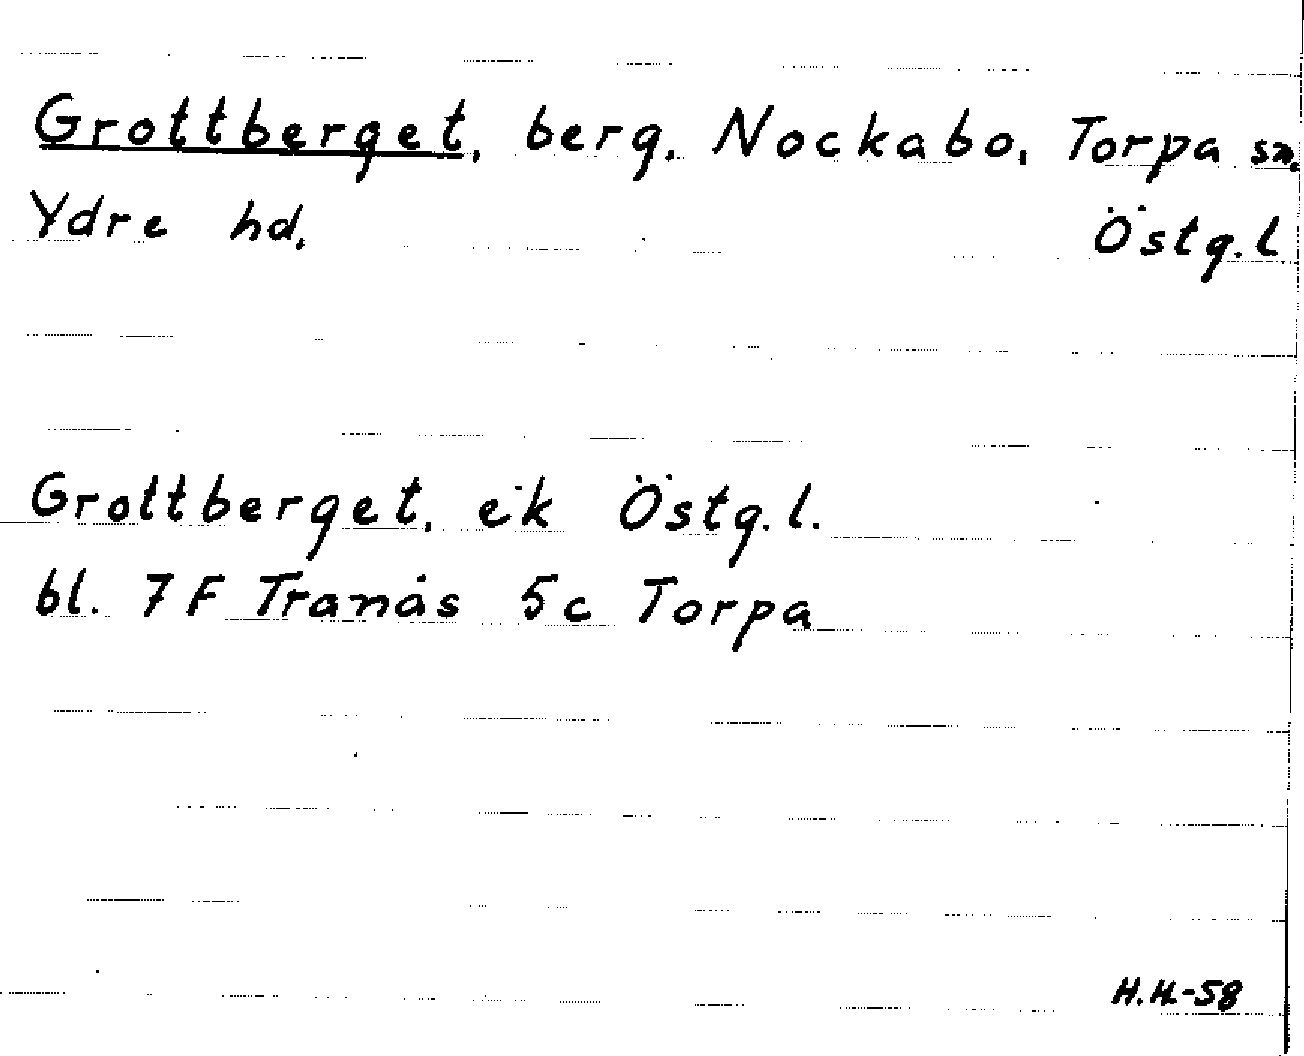 Grottberget, berg, Nockabo, Torpa sn.
Ydre hd. Östg.l.
Grottberget, ek Östg.l.
bl. 7F Tranås 5c Torpa
H.H.-58